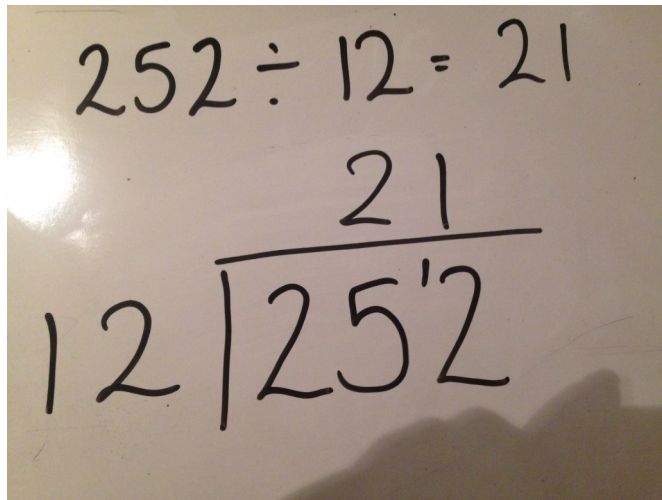 252 ÷ 12 = 21
21
12 25'2